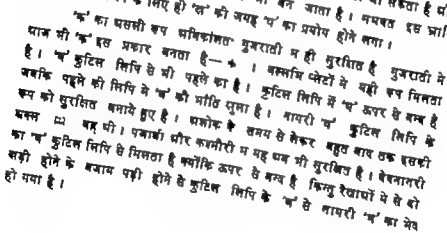 के लिए ही 'ल' की जगह 'प' का प्रयोप होने लगा।
'क' का असली रूप अधिकांशतः गुजराती में ही सुरक्षित है गुजराती में
आज भी 'क' इस प्रकार बनता है— । वल्लभि प्लेटों में यही रूप मिलता
है। 'व' कुटिल लिपि से भी पहले का है। कुटिल लिपि में 'व' ऊपर से बन्द है
जबकि पहले की लिपि में 'व' की भांति खुला है। नागरी 'ध' कुटिल लिपि के
रूप को सुरक्षित बनाये हुए है। अशोक के समय से लेकर बहुत बाद तक इसकी
शक्ल यह थी। पंजाबी और कश्मीरी में यह अब भी सुरक्षित है। देवनागरी
का 'ध' कुटिल लिपि से मिलता है क्योंकि ऊपर से बन्द है किन्तु रेखाओं में से दो
खड़ी होने के बजाय पड़ी होने से कुटिल लिपि के से नागरी का भेद
हो गया है।